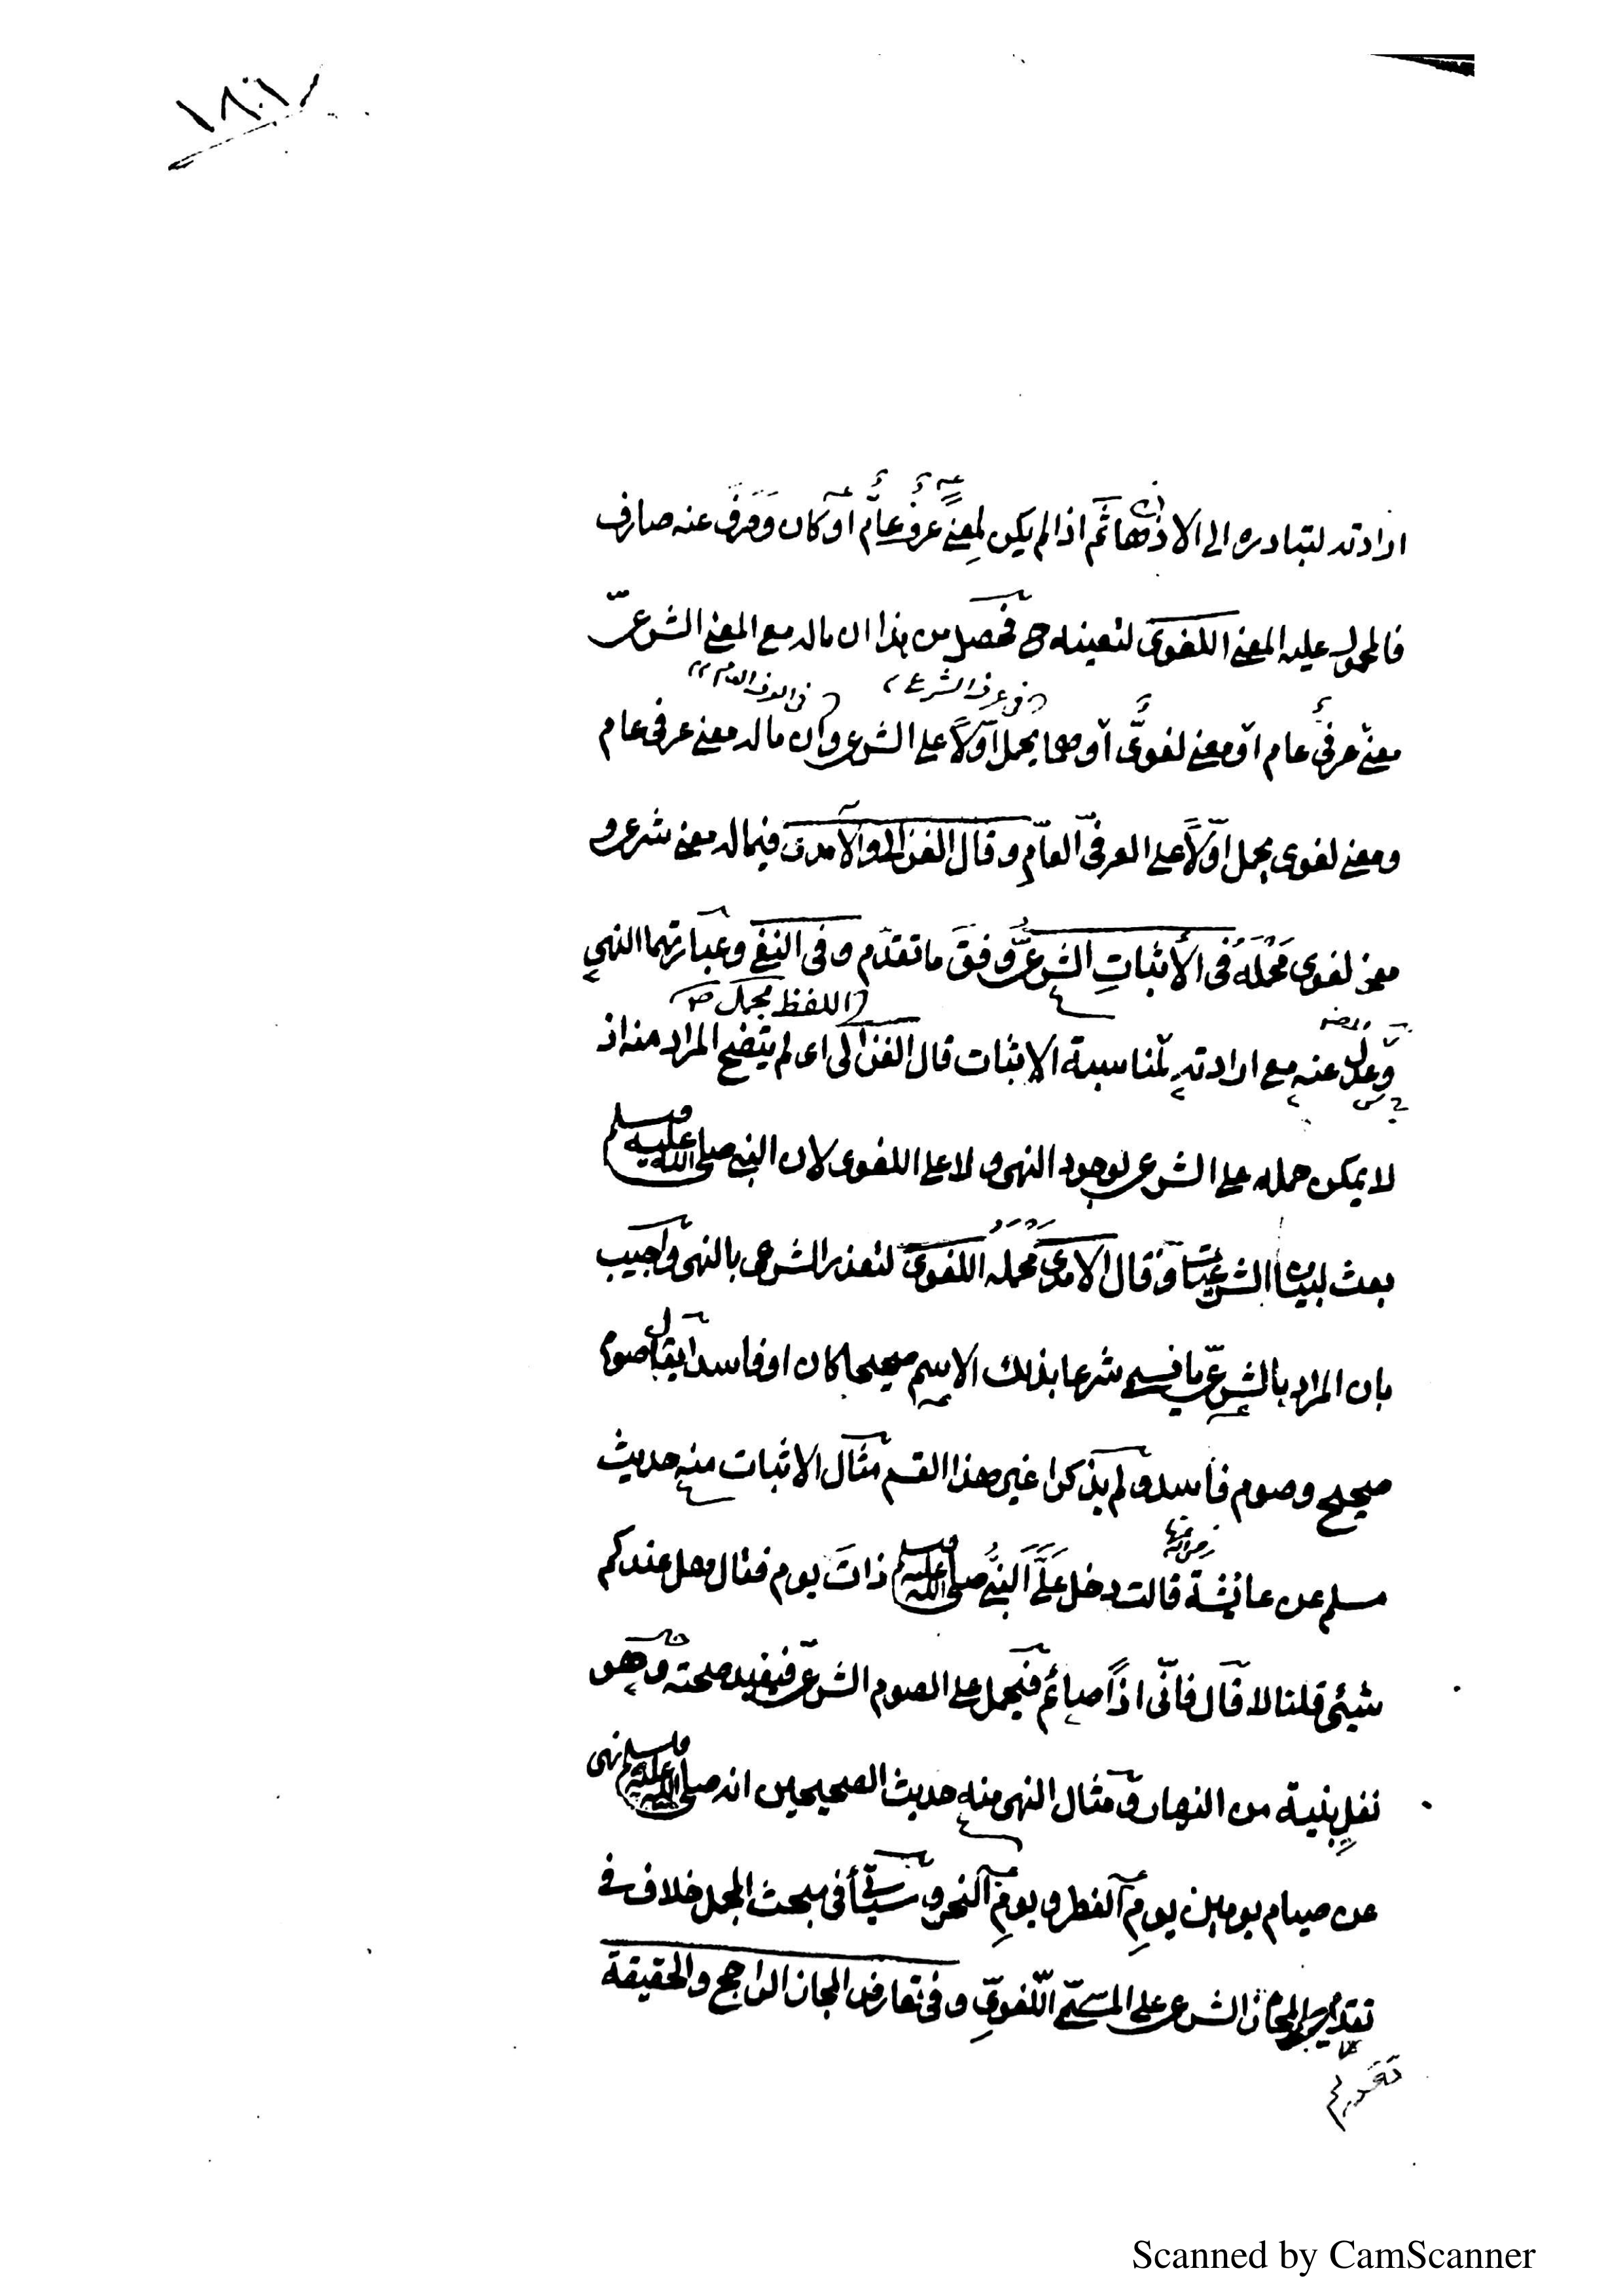 ارادته لتبادره الى الاذهان ثم اذا لم يكن لمعنى عرفي عام او كان وصرف عنه صارف
فالمحمول عليه المعنى اللغوى لتعينه ح فحصل من هذا ان ماله مع المعنى الشرعى
في عرف الشرع في العرف العام
معنى عرفى عام او معنى لغوى او هما يحمل اولا على الشرعى وان ماله معنى عرفى عام
ومعنى لغوى يحمل اولا على العرفى العام وقال الغزالى والآمدى فيما له معنى شرعى و
معنى لغوى محمله فى الأثبات الشرعى وفق ما تقدم وفى النفى وعبارتهما النهى
اللفظ مجمل
وعدل عنه مع ارادته لمناسبة الاثبات قال الغزالى اى لم يتضح المراد منه اذ
لا يمكن حمله على الشرعى لوجود النهى ولا على اللغوى لان النبى صلى الله عليه وسلم
بعث لبيان الشرعيات وقال الآمدى محمله اللغوى لتعذر الشرعى بالنهى واجيب
بان المراد بالشرعى ما يسمى شرعا بذلك الاسم صحيحا كان او فاسدا يقال صوم
صحيح وصوم فاسد ولم يذكرا غير هذا القسم مثال الاثبات منه حديث
رضى الله عنها
مسلم عن عائشة قالت دخل علىّ النبى صلى الله عليه وسلم ذات يوم فقال هل عندكم
شيئى قلنا لا قال فانى اذا صائم فيحمل على الصوم الشرعى فيفيد صحته وهو
نفل بنية من النهار ومثال النهى منه حديث الصحيحين انه صلى الله عليه وسلم نهى
عن صيام يومين يوم الفطر ويوم النحر وسيأتى فى مبحث المجمل خلاف فى
تقديم المجاز الشرعى على المسمى اللغوى وفى تعارض المجاز الراجح والحقيقة
Scanned by CamScanner